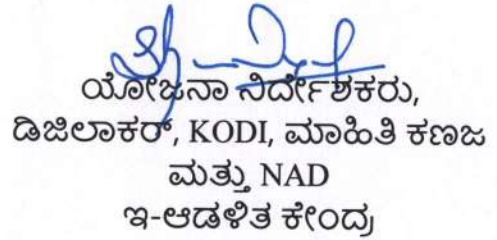 ಯೋಜನಾ ನಿರ್ದೇಶಕರು,
ಡಿಜಿಲಾಕರ್, KODI, ಮಾಹಿತಿ ಕಣಜ
ಮತ್ತು NAD
ಇ-ಆಡಳಿತ ಕೇಂದ್ರ